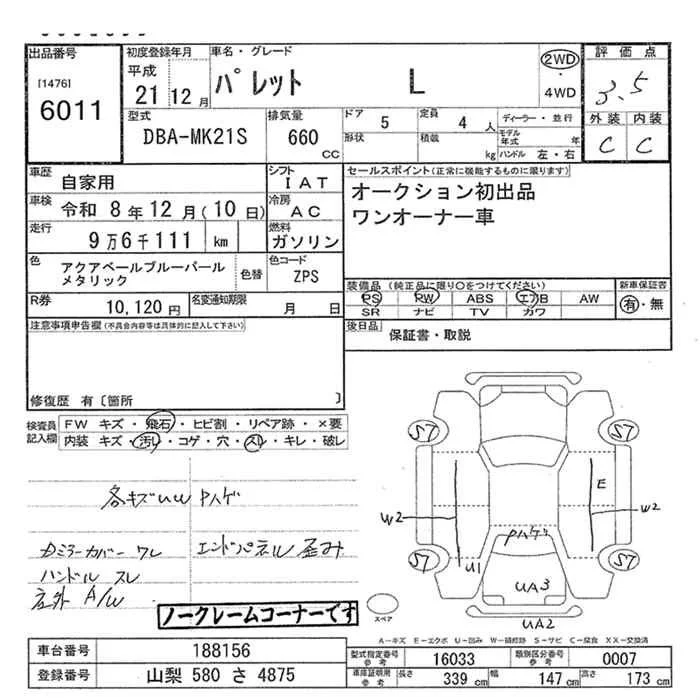 出品番号
[1476]
6011
初度登録年月
平成
21 12月
車名・グレード
パレット L
2WD
・
4WD
評価点
3.5
外装 内装
C C
型式
DBA-MK21S
排気量
660
CC
ドア
5
定員
4 人
形状
積載
kg
ディーラー・並行
モデル年式 年
ハンドル 左・右
車歴
自家用
車検 令和 8年12月(10日)
走行
9万6千111 km
シフト
IAT
冷房
AC
燃料
ガソリン
セールスポイント(正常に機能するものに限ります)
オークション初出品
ワンオーナー車
色
アクアベールブルーパール
メタリック
色替
色コード
ZPS
装備品(純正品に限り○をつけてください)
PS PW ABS エアB AW
SR ナビ TV カワ
新車保証書
有・無
R券
10,120円
名変通知期限
月 日
後日品
保証書・取説
注意事項申告欄(不具合内容等は具体的に記入して下さい)
修復歴 有〔箇所 〕
検査員記入欄
FW キズ・飛石・ヒビ割・リペア跡・×要
内装 キズ・汚レ・コゲ・穴・スレ・キレ・破レ
各キズUW Pハゲ
ミラーカバー ワレ
エンドパネル 歪み
ハンドル スレ
左外 A/W
ノークレームコーナーです
S7
S7
E
W2
W2
Pハゲ
U1
S7
S7
UA3
UA2
スペア
A-キズ E-エクボ U-凹み W-補修跡 S-サビ C-腐食 XX-交換済
車台番号
188156
登録番号
山梨 580 さ 4875
型式指定番号
参考
16033
類別区分番号
参考
0007
車庫証明用
参考
長さ
339 cm
幅
147 cm
高さ
173 cm